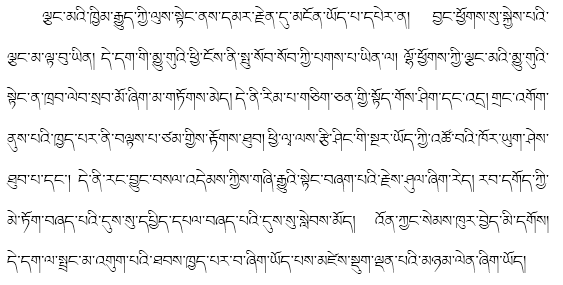 ལྕང་མའི་ཁྱིམ་རྒྱུད་ཀྱི་ལུས་སྟེང་ནས་དམར་རྗེན་དུ་མངོན་ཡོད་པ་དཔེར་ན། བྱང་ཕྱོགས་སུ་སྐྱེས་པའི་
ལྕང་མ་ལྟ་བུ་ཡིན། དེ་དག་གི་མྱུ་གུའི་ཕྱི་ངོས་ནི་སྤུ་སོབ་སོབ་ཀྱི་པགས་པ་ཡིན་ལ། ལྷོ་ཕྱོགས་ཀྱི་ལྕང་མའི་མྱུ་གུའི་
སྟེང་ན་ཁྲབ་ལེབ་སྲབ་མོ་ཞིག་མ་གཏོགས་མེད། དེ་ནི་རིམ་པ་གཅིག་ཅན་གྱི་སྟོད་གོས་ཤིག་དང་འདྲ། གྲང་འགོག་
ནུས་པའི་ཁྱད་པར་ནི་བལྟས་པ་ཙམ་གྱིས་རྟོགས་ཐུབ། ཕྱི་ལྭ་ལས་རྩི་ཤིང་གི་སྔར་ཡོད་ཀྱི་འཚོ་བའི་ཁོར་ཡུག་ཤེས་
ཐུབ་པ་དང་། དེ་ནི་རང་བྱུང་བསལ་འདེམས་ཀྱིས་གཞི་རྒྱུའི་སྟེང་བཞག་པའི་རྗེས་ཤུལ་ཞིག་རེད། རབ་དགོད་ཀྱི་
མེ་ཏོག་བཞད་པའི་དུས་སུ་དཔྱིད་དཔལ་བཞད་པའི་དུས་སུ་སླེབས་མོད། འོན་ཀྱང་སེམས་ཁུར་བྱེད་མི་དགོས།
དེ་དག་ལ་སྦྲང་མ་འགུག་པའི་ཐབས་ཁྱད་པར་བ་ཞིག་ཡོད་པས་མཛེས་སྡུག་ལྡན་པའི་མཉམ་ལེན་ཞིག་ཡོད།